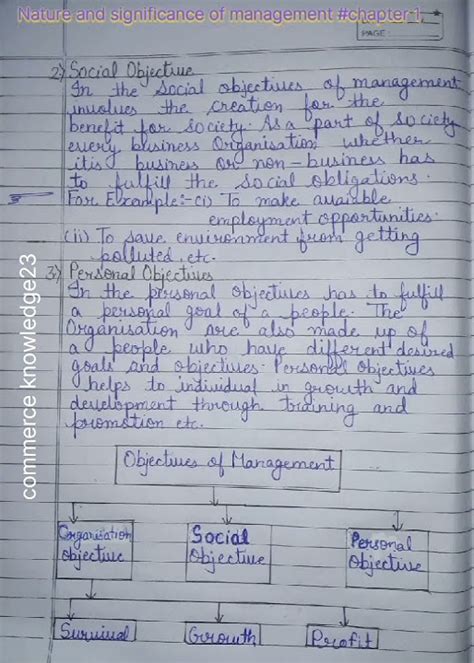 Nature and significance of management #chapter 1
PAGE
2) Social Objective
In the social objectives of management
involves the creation for the
benefit for society. As a part of society
every business Organisation whether
it is business or non-business has
to fulfill the social obligations.
For Example:-(i) To make avairble
employment opportunities.
(ii) To save environment from getting
polluted. etc.
3) Personal Objectives
In the personal objectives has to fulfill
a personal goal of a people. The
Organisation are also made up of
a people who have different desired
goals and objectives. Personal objectives
helps to individual in growth and
development through training and
promotion etc.
Objectives of Management
Organisation
objective
Social
Objective
Personal
Objective
Survival
Growth
Profit
commerce knowledge23